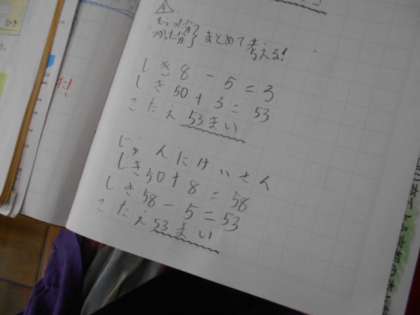 まとめて考える!
しき 8 - 5 = 3
しき 50 + 3 = 53
こたえ 53まい
じゅんにけいさん
しき 50 + 8 = 58
しき 58 - 5 = 53
こたえ 53まい